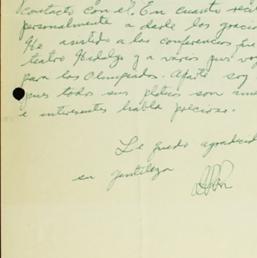 contacto con el. En cuanto reci
personalmente a darle las gracias
He asistido a las conferencias que
teatro Hidalgo y a varios que voy
para las Olimpiadas. Aparte soy
pues todos sus pláticas son ame
e interesantes habla precioso.
Le quedo agradecid
su gentileza